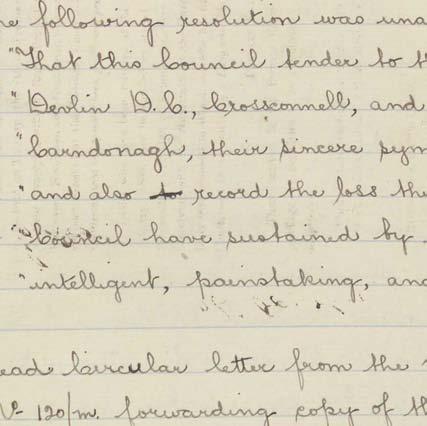 he following resolution was una
"That this Council tender to t
"Devlin D.C., Crossconnell, and
"Carndonagh, their sincere sym
"and also to record the loss the
"Council have sustained by
"intelligent, painstaking, and
ead Circular letter from the
No 120/M. forwarding copy of th